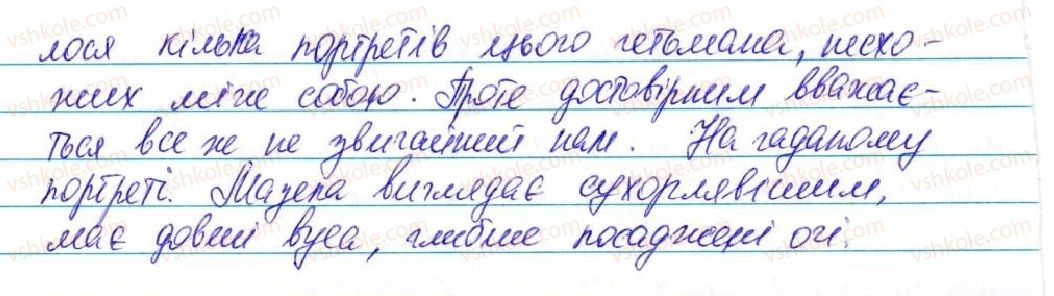 лося кілька портретів цього гетьмана, несхо-
жих між собою. Проте достовірним вважаєть-
ться все ж не звичайний нам. На гаданому
портреті. Мазепа виглядає сухорлявішим,
має довші вуса, глибше посаджені очі.